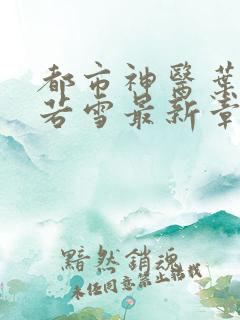 都市神醫葉
若雪最新章
黯然銷魂
未经同意禁止转载